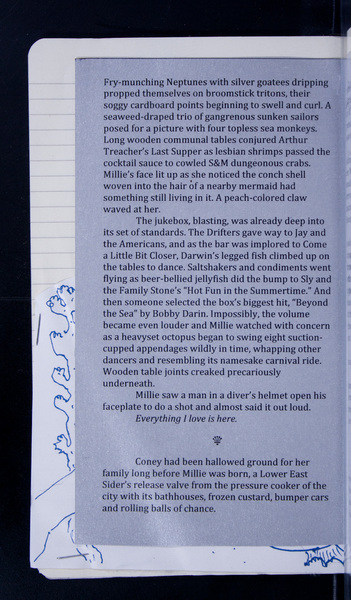 Fry-munching Neptunes with silver goatees dripping
propped themselves on broomstick tritons, their
soggy cardboard points beginning to swell and curl. A
seaweed-draped trio of gangrenous sunken sailors
posed for a picture with four topless sea monkeys.
Long wooden communal tables conjured Arthur
Treacher's Last Supper as lesbian shrimps passed the
cocktail sauce to cowled S&M dungeonous crabs.
Millie's face lit up as she noticed the conch shell
woven into the hair of a nearby mermaid had
something still living in it. A peach-colored claw
waved at her.
The jukebox, blasting, was already deep into
its set of standards. The Drifters gave way to Jay and
the Americans, and as the bar was implored to Come
a Little Bit Closer, Darwin's legged fish climbed up on
the tables to dance. Saltshakers and condiments went
flying as beer-bellied jellyfish did the bump to Sly and
the Family Stone's "Hot Fun in the Summertime." And
then someone selected the box's biggest hit, "Beyond
the Sea" by Bobby Darin. Impossibly, the volume
became even louder and Millie watched with concern
as a heavyset octopus began to swing eight suction-
cupped appendages wildly in time, whapping other
dancers and resembling its namesake carnival ride.
Wooden table joints creaked precariously
underneath.
Millie saw a man in a diver's helmet open his
faceplate to do a shot and almost said it out loud.
Everything I love is here.
Coney had been hallowed ground for her
family long before Millie was born, a Lower East
Sider's release valve from the pressure cooker of the
city with its bathhouses, frozen custard, bumper cars
and rolling balls of chance.